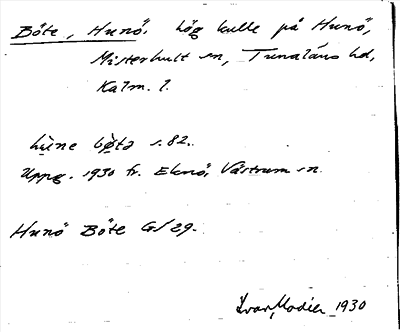 Böte, Hunö. hög kulle på Hunö,
Misterhult sn, Tunaläns hd,
Kalm. l.
hùne bø̀tə s. 82.
Uppg. 1930 fr. Eknö, Västrum sn.
Hunö Böte G/29.
Ivar Modéer 1930